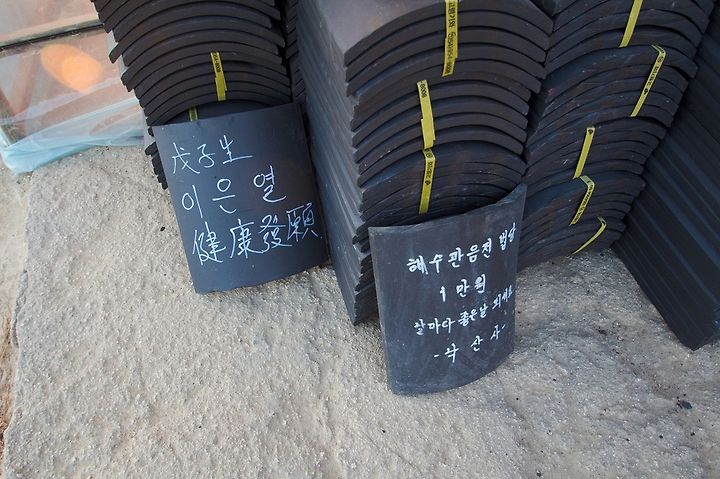 戊子生
이 은 열
健康發願
해수관음전 법당
1 만원
날마다 좋은날 되세요
- 낙 산 사 -